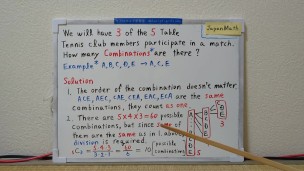 JapanMath
We will have 3 of the 5 Table
Tennis club members participate in a match.
How many Combinations are there?
Example A, B, C, D, E → A, C, E
Solution
1. The order of the combination doesn't matter.
ACE, AEC, CAE, CEA, EAC, ECA are the same
combinations, they count as one.
2. There are 5×4×3=60 possible
combinations, but since some of
them are the same as in 1. above
division is required.
5C3 = 5·4·3 / 3·2·1 = 60 / 6 = 10 possible
combinations
A
B
C
D
E
5
3